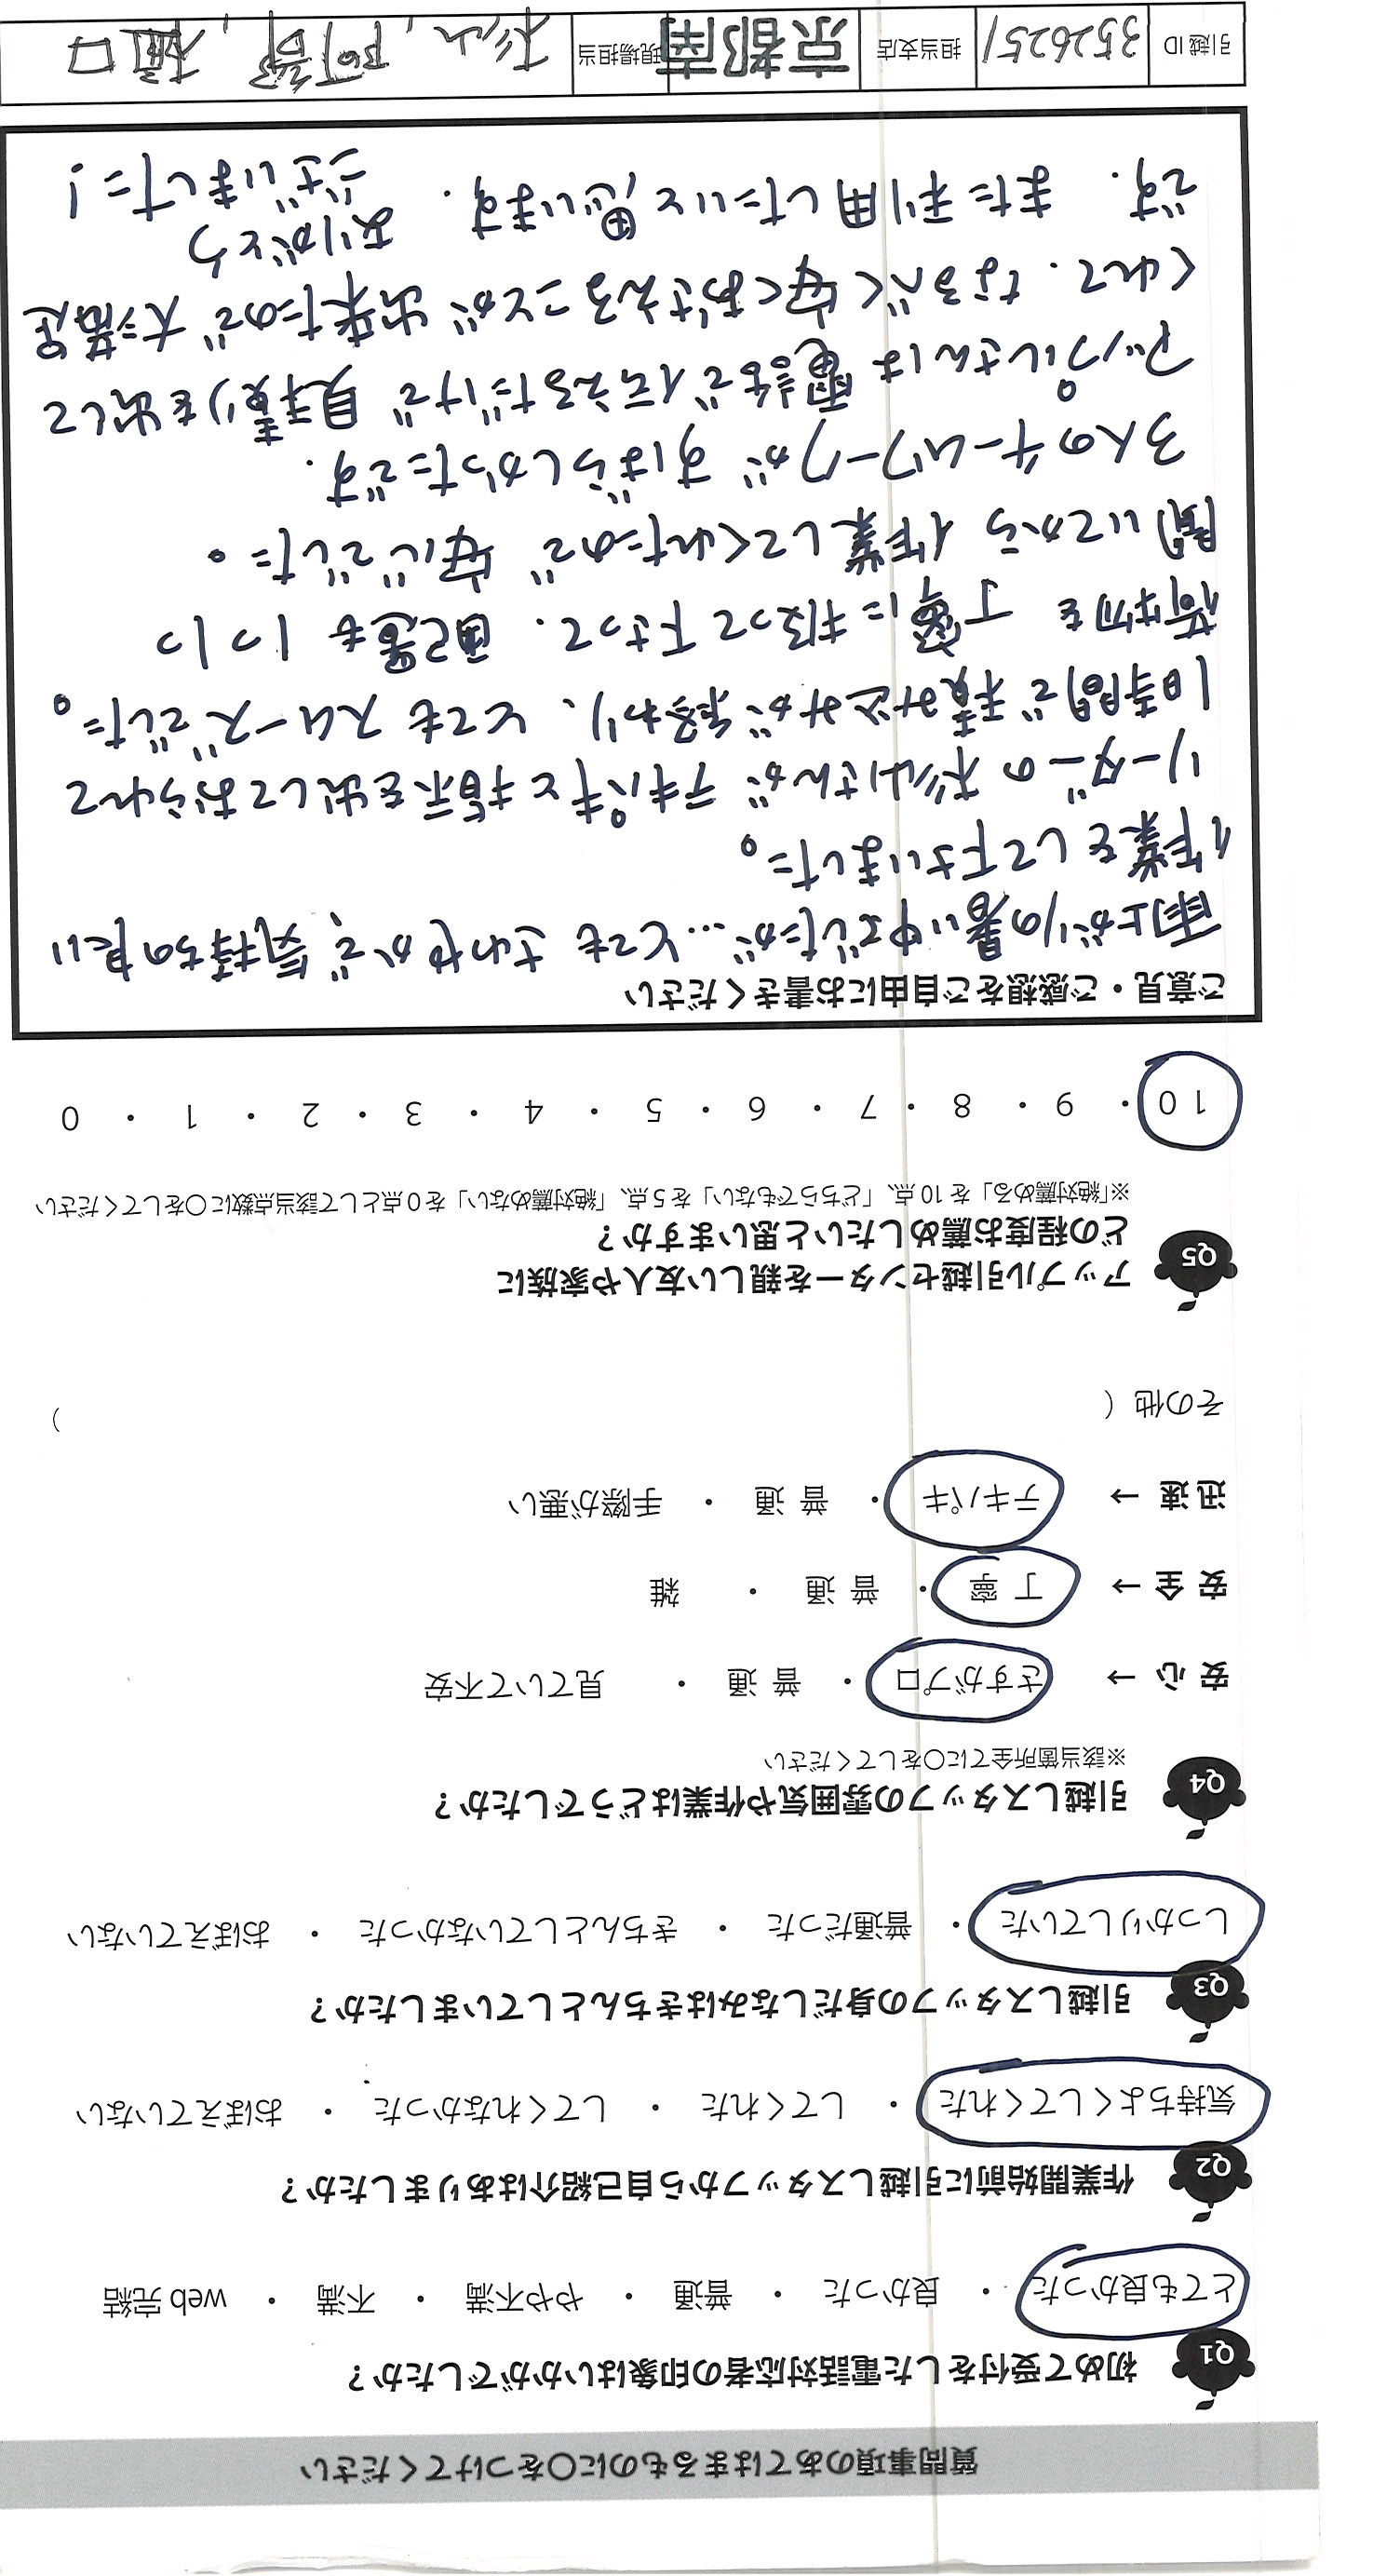 質問事項のあてはまるものに〇をつけてください
Q1 初めて受付をした電話対応者の印象はいかがでしたか？
とても良かった ・ 良かった ・ 普通 ・ やや不満 ・ 不満 ・ web 完結
Q2 作業開始前に引越しスタッフから自己紹介はありましたか？
気持ちよくしてくれた ・ してくれた ・ してくれなかった ・ おぼえていない
Q3 引越しスタッフの身だしなみはきちんとしていましたか？
しっかりしていた ・ 普通だった ・ きちんとしていなかった ・ おぼえていない
Q4 引越しスタッフの雰囲気や作業はどうでしたか？
※該当箇所全てに〇をしてください
安 心 → さすがプロ ・ 普 通 ・ 見ていて不安
安 全 → 丁 寧 ・ 普 通 ・ 雑
迅 速 → テキパキ ・ 普 通 ・ 手際が悪い
その他（ ）
Q5 アップル引越センターを親しい友人や家族に
どの程度お薦めしたいと思いますか？
※「絶対薦める」を 10 点、「どちらでもない」を 5 点、「絶対薦めない」を 0 点として該当点数に〇をしてください
10 ・ 9 ・ 8 ・ 7 ・ 6 ・ 5 ・ 4 ・ 3 ・ 2 ・ 1 ・ 0
ご意見・ご感想をご自由にお書きください
雨上がりの暑い中でしたが…とても さわやかで、気持ちの良い
作業をして下さいました。
リーダーの杉山さんが テキパキと指示を出しておられて
1時間で積み込みが終わり、とても スムーズでした。
荷物を 丁寧に扱って下さって、配置も 1つ1つ
聞いてから 作業してくれたので 安心でした。
3人のチームワークが すばらしかったです。
アップルさんは 電話で伝えるだけで 見積りを出して
くれて、なるべく安くおさえることが 出来たので 大満足
です。 また利用したいと思います。 ありがとう
ございました！
引越 ID 3526251 担当支店 京都南 現場担当 杉山, 阿部, 樋口